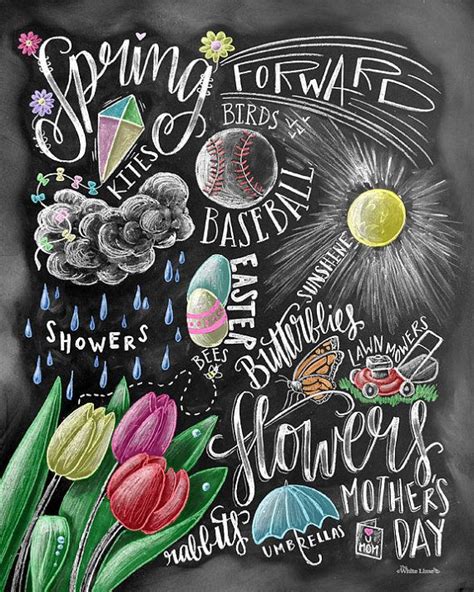 Spring
FORWARD
BIRDS
KITES
BASEBALL
SUNSHINE
EASTER
SHOWERS
BEES
Butterflies
LAWN MOWERS
flowers
MOTHER'S
DAY
rabbits
UMBRELLAS
MOM
White Lime